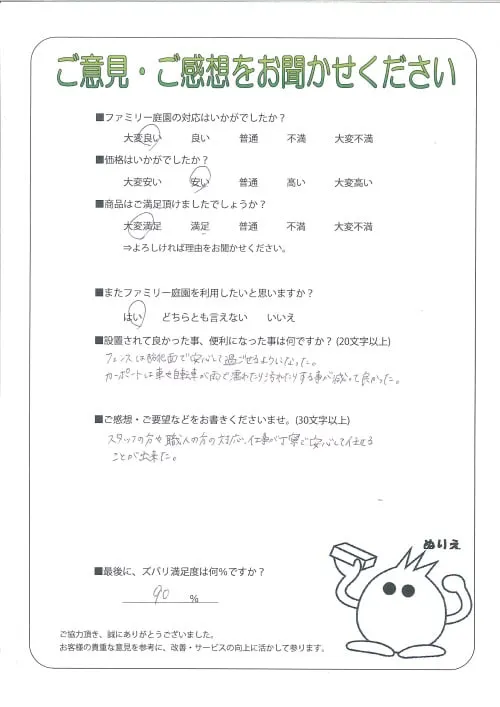 ご意見・ご感想をお聞かせください
■ファミリー庭園の対応はいかがでしたか？
大変良い 良い 普通 不満 大変不満
■価格はいかがでしたか？
大変安い 安い 普通 高い 大変高い
■商品はご満足頂けましたでしょうか？
大変満足 満足 普通 不満 大変不満
⇒よろしければ理由をお聞かせください。
■またファミリー庭園を利用したいと思いますか？
はい どちらとも言えない いいえ
■設置されて良かった事、便利になった事は何ですか？(20文字以上)
フェンスは防犯面で安心して過ごせるようになった。
カーポートは車や自転車が雨で濡れたり汚れたりする事が減って良かった。
■ご感想・ご要望などをお書きくださいませ。(30文字以上)
スタッフの方や職人の方の対応、仕事が丁寧で安心して任せる
ことが出来た。
ぬりえ
■最後に、ズバリ満足度は何％ですか？
90 ％
ご協力頂き、誠にありがとうございました。
お客様の貴重な意見を参考に、改善・サービスの向上に活かして参ります。